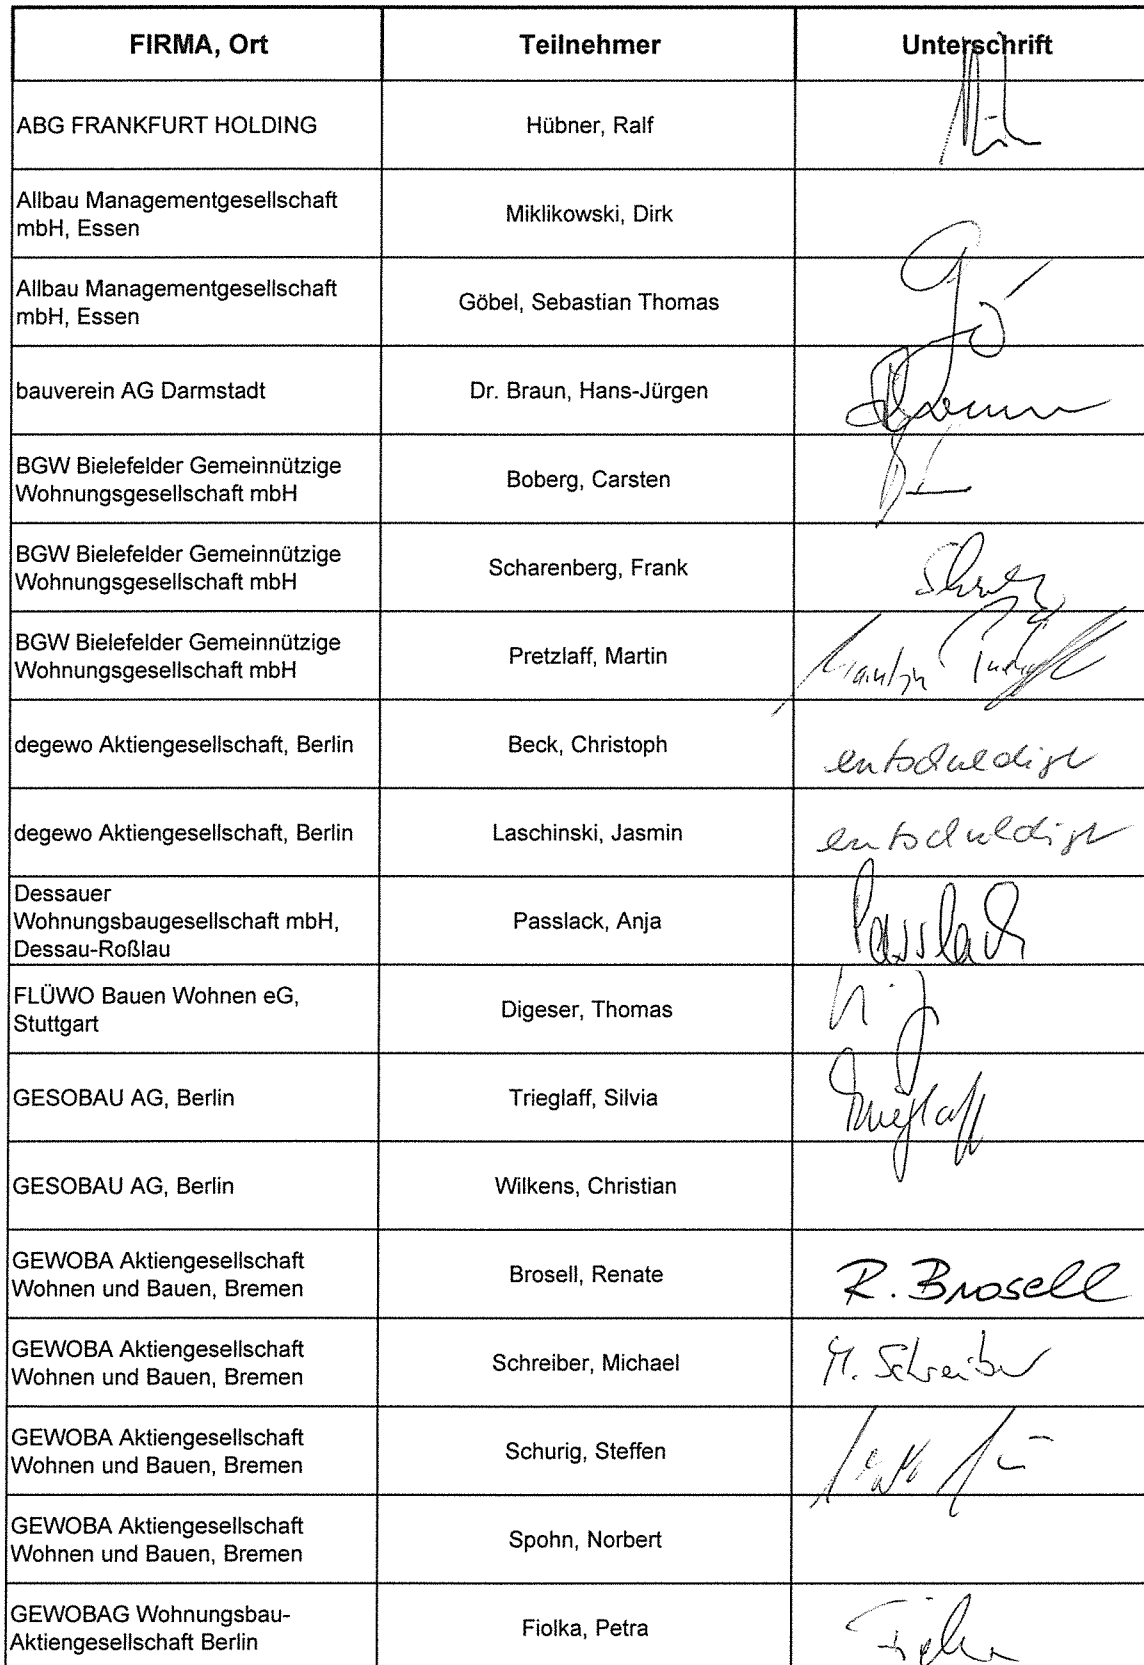 FIRMA, Ort Teilnehmer Unterschrift
ABG FRANKFURT HOLDING Hübner, Ralf
Allbau Managementgesellschaft
mbH, Essen Miklikowski, Dirk
Allbau Managementgesellschaft
mbH, Essen Göbel, Sebastian Thomas
bauverein AG Darmstadt Dr. Braun, Hans-Jürgen
BGW Bielefelder Gemeinnützige
Wohnungsgesellschaft mbH Boberg, Carsten
BGW Bielefelder Gemeinnützige
Wohnungsgesellschaft mbH Scharenberg, Frank
BGW Bielefelder Gemeinnützige
Wohnungsgesellschaft mbH Pretzlaff, Martin
degewo Aktiengesellschaft, Berlin Beck, Christoph entschuldigt
degewo Aktiengesellschaft, Berlin Laschinski, Jasmin entschuldigt
Dessauer
Wohnungsbaugesellschaft mbH,
Dessau-Roßlau Passlack, Anja Passlack
FLÜWO Bauen Wohnen eG,
Stuttgart Digeser, Thomas
GESOBAU AG, Berlin Trieglaff, Silvia Trieglaff
GESOBAU AG, Berlin Wilkens, Christian
GEWOBA Aktiengesellschaft
Wohnen und Bauen, Bremen Brosell, Renate R. Brosell
GEWOBA Aktiengesellschaft
Wohnen und Bauen, Bremen Schreiber, Michael M. Schreiber
GEWOBA Aktiengesellschaft
Wohnen und Bauen, Bremen Schurig, Steffen
GEWOBA Aktiengesellschaft
Wohnen und Bauen, Bremen Spohn, Norbert
GEWOBAG Wohnungsbau-
Aktiengesellschaft Berlin Fiolka, Petra Fiolka